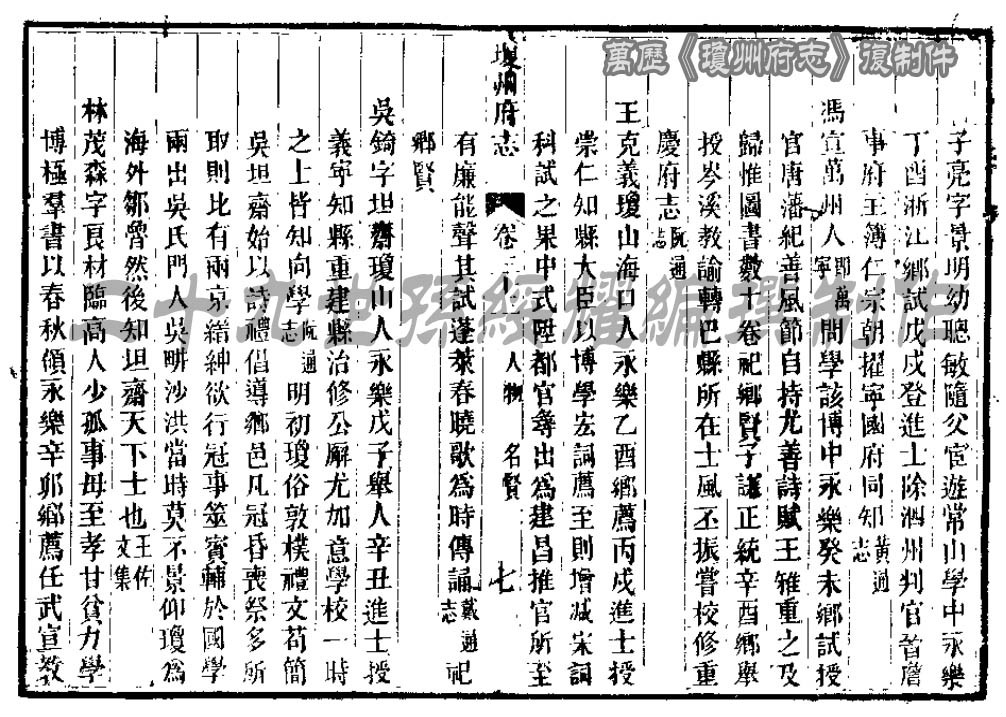 萬歷《瓊州府志》復制件
子亮字景明幼聰敏隨父宦遊常山學中永樂
丁酉浙江鄉試戊戌登進士除泗州判官晉詹
事府主簿仁宗朝擢寧國府同知黃通志
馮宣萬州人即萬寧問學該博中永樂癸未鄉試授
官唐藩紀善風節自持尤善詩賦王雅重之及
歸惟圖書數十卷祀鄉賢子謹正統辛酉鄉舉
授岑溪教諭轉巴縣所在士風丕振嘗校修重
慶府志阮通志
王克義瓊山海口人永樂乙酉鄉薦丙戌進士授
崇仁知縣大臣以博學宏詞薦至則增減宋詞
科試之果中式陞都官尋出為建昌推官所至
有廉能聲其試蓬萊春曉歌為時傳誦戴通志祀
鄉賢
瓊州府志 卷三十三 人物 名賢 七
吳錡字坦齋瓊山人永樂戊子舉人辛丑進士授
義寧知縣重建縣治修公廨尤加意學校一時
之士皆知向學阮通志明初瓊俗敦樸禮文苟簡
吳坦齋始以詩禮倡導鄉邑凡冠昏喪祭多所
取則比有兩京縉紳欲行冠事筮賓輔於國學
兩出吳氏門人吳畊沙洪當時莫不景仰瓊為
海外鄒魯然後知坦齋天下士也王佐文集
林茂森字良材臨高人少孤事母至孝甘貧力學
博極羣書以春秋領永樂辛卯鄉薦任武宣教
二十九世孫經耀編撰制作